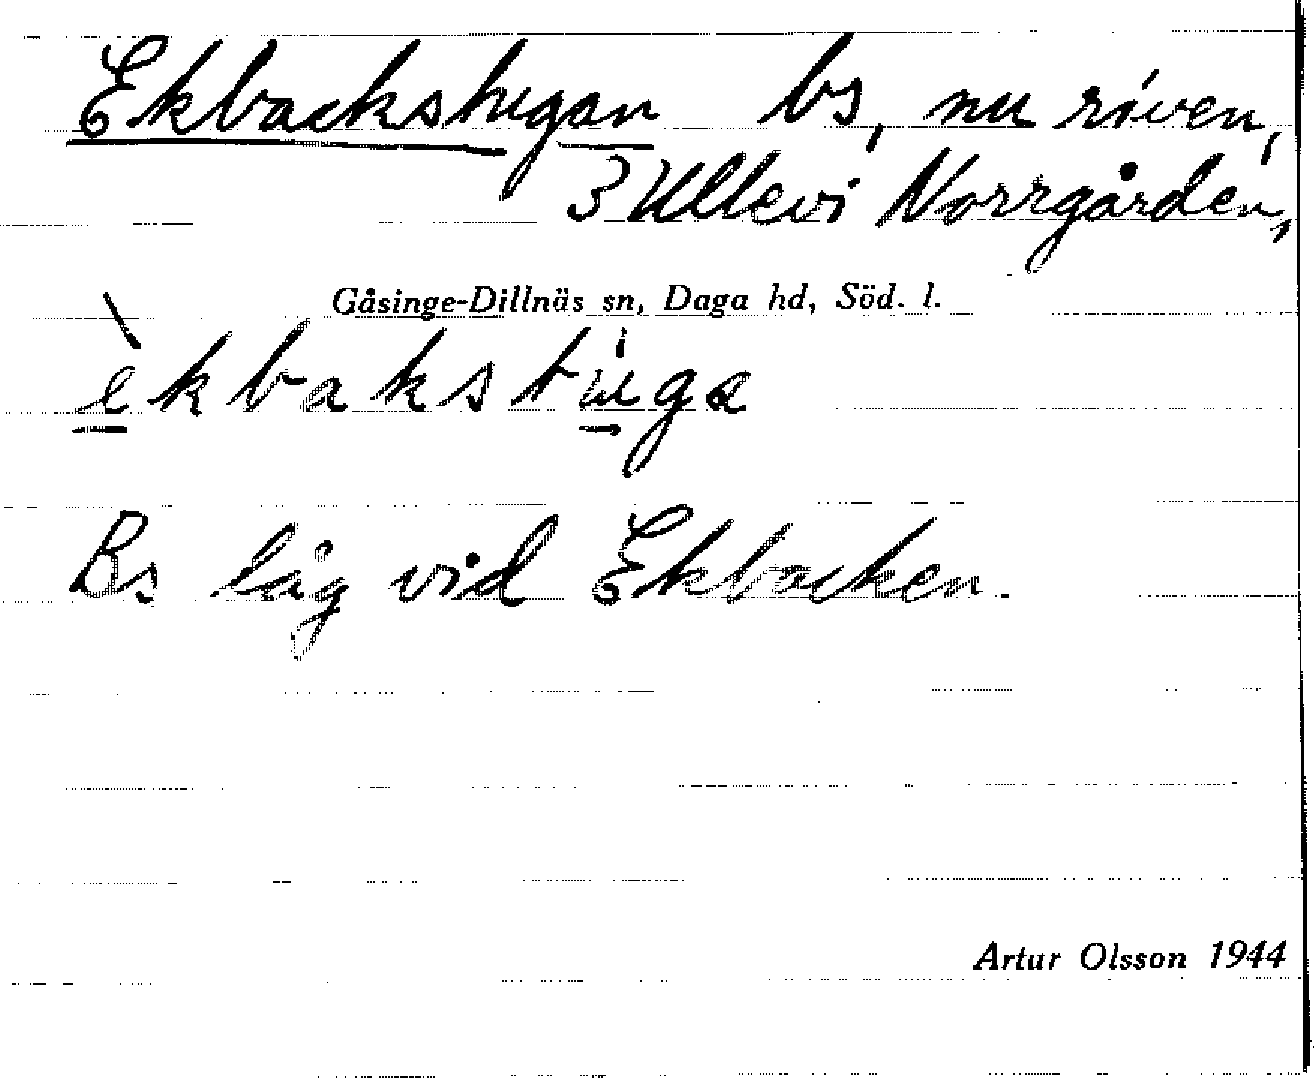 Ekbackstugan bs, nu riven,
3 Ullevi Norrgården,
Gåsinge-Dillnäs sn, Daga hd, Söd. l.
èkbakstu̍ga
Bs låg vid Ekbacken.
Artur Olsson 1944